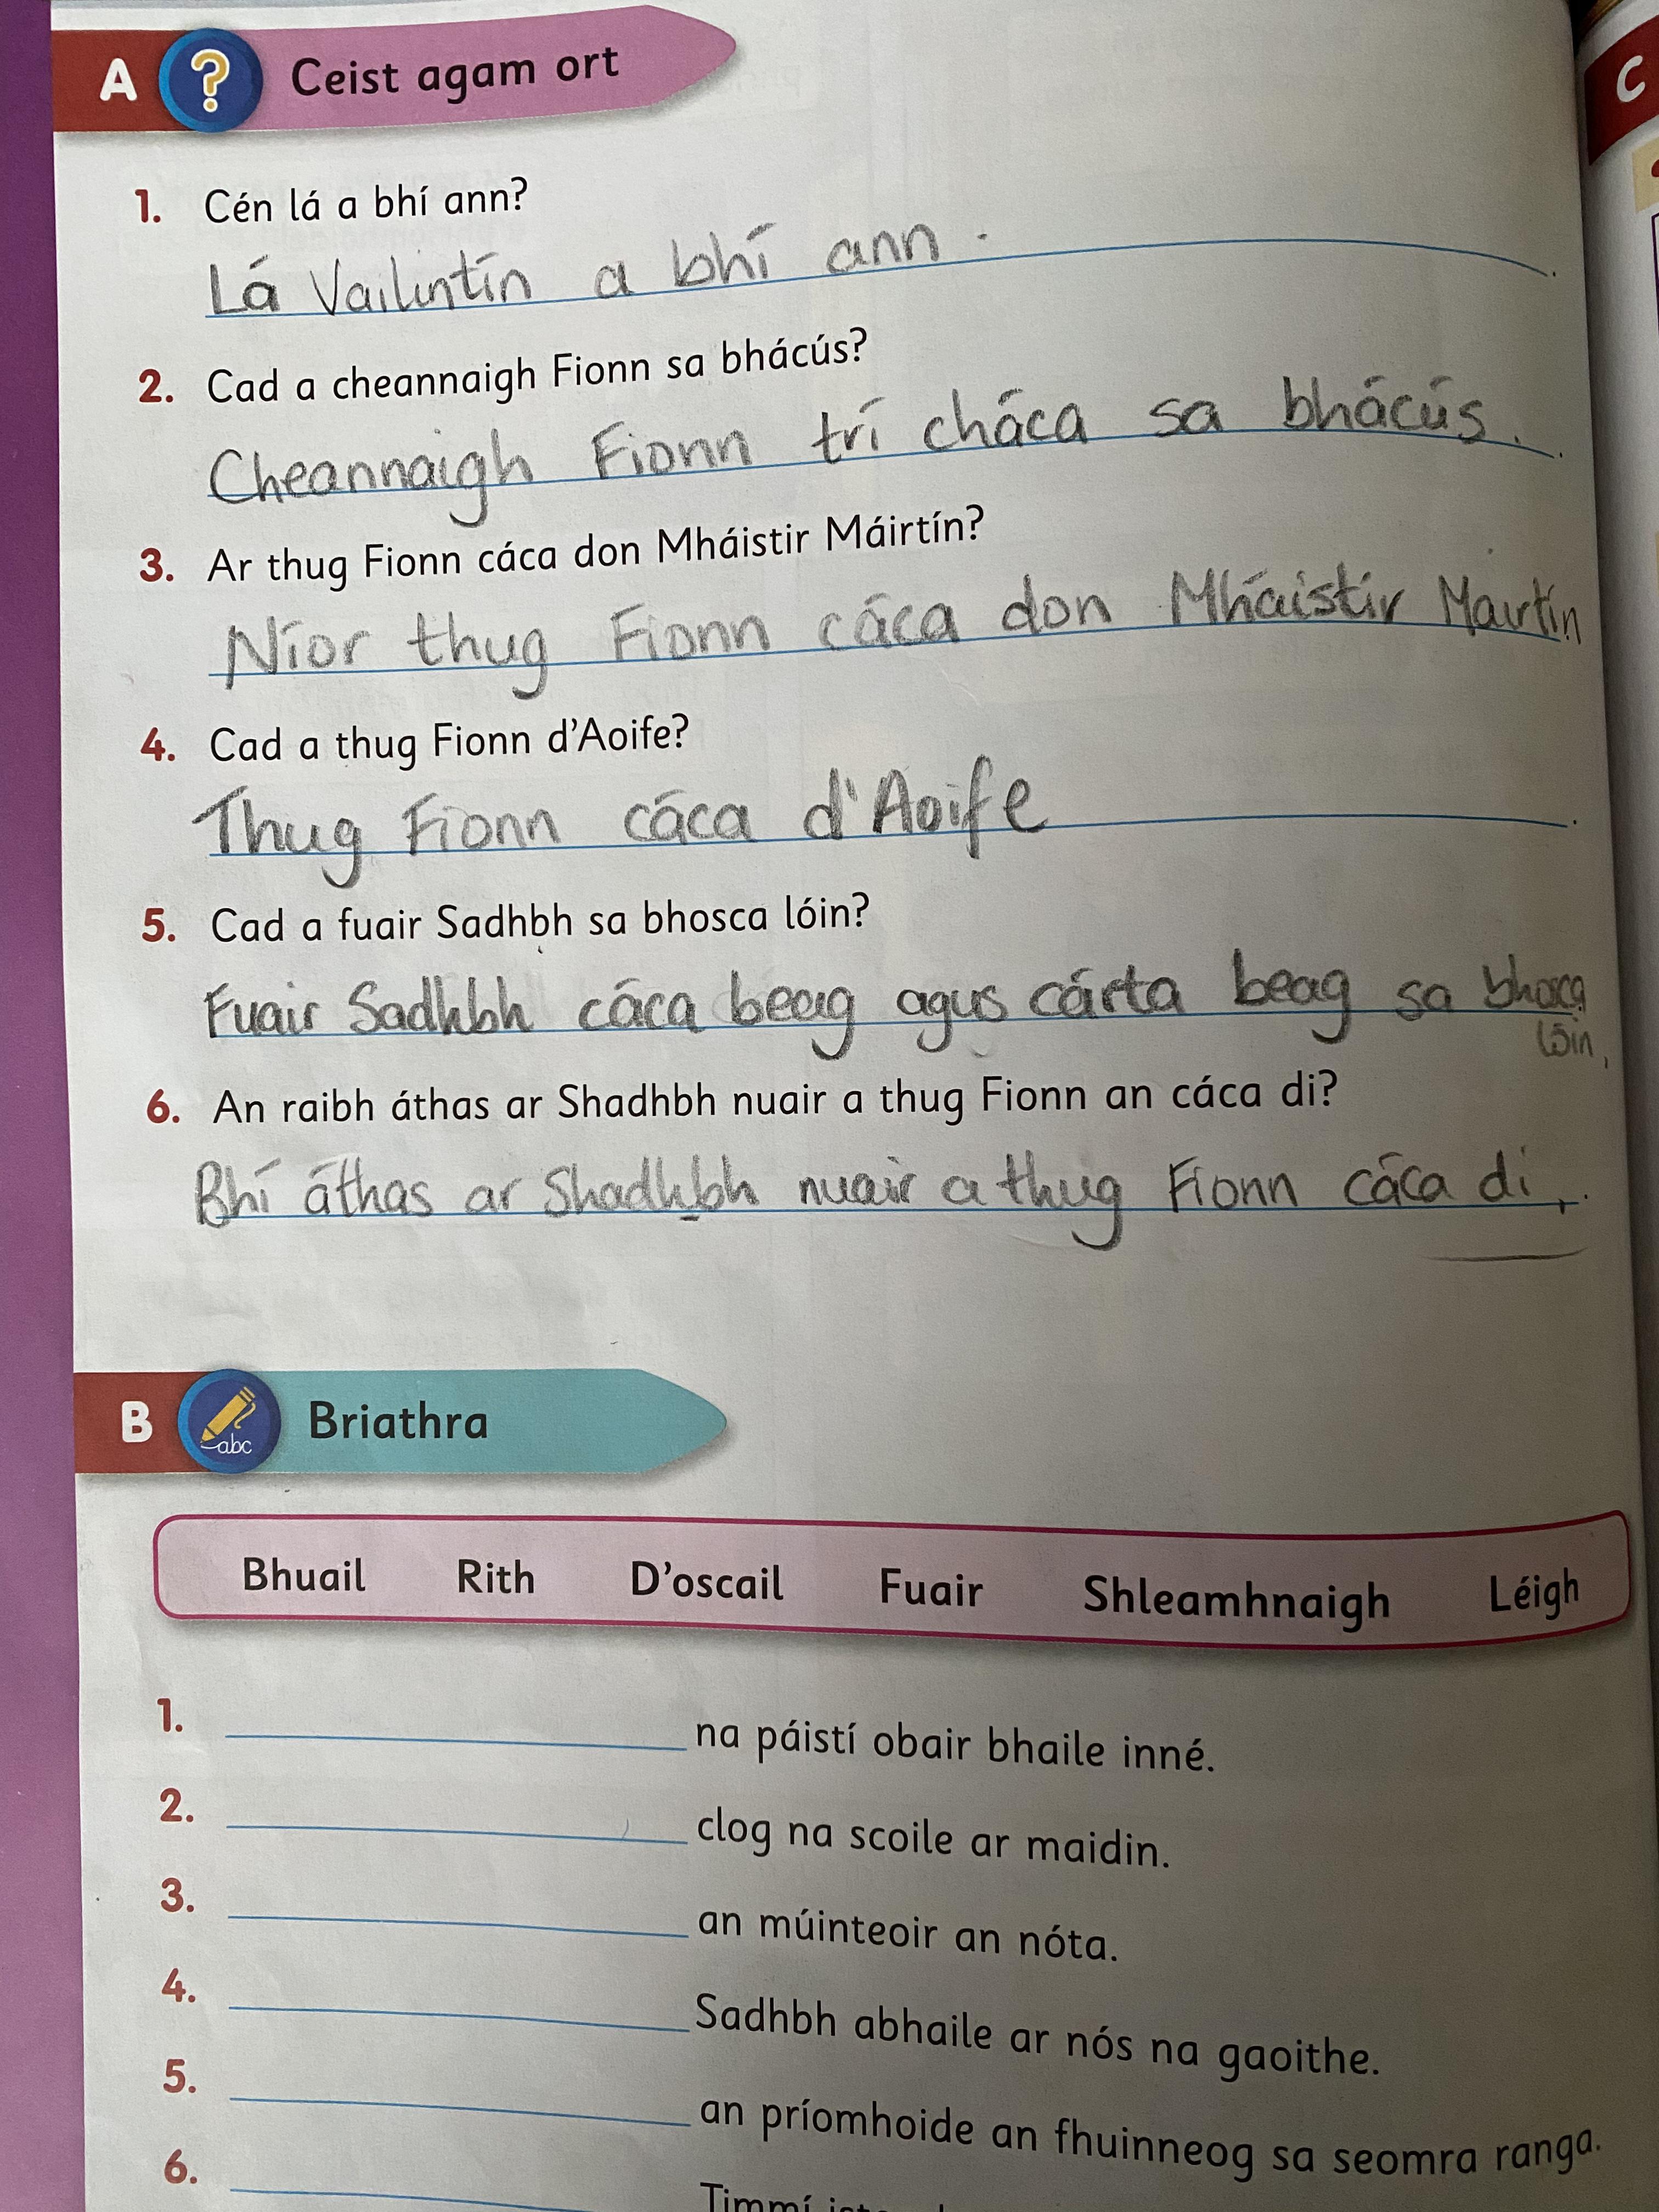 A ? Ceist agam ort
C
1. Cén lá a bhí ann?
Lá Vailintín a bhí ann .
2. Cad a cheannaigh Fionn sa bhácús?
Cheannaigh Fionn trí cháca sa bhácús.
3. Ar thug Fionn cáca don Mháistir Máirtín?
Níor thug Fionn cáca don Mháistir Mairtín
4. Cad a thug Fionn d'Aoife?
Thug Fionn cáca d'Aoife
5. Cad a fuair Sadhbh sa bhosca lóin?
Fuair Sadhbh cáca beag agus cárta beag sa bhosca
lóin,
6. An raibh áthas ar Shadhbh nuair a thug Fionn an cáca di?
Bhí áthas ar Shadhbh nuair a thug Fionn cáca di,.
B abc Briathra
Bhuail Rith D'oscail Fuair Shleamhnaigh Léigh
1. na páistí obair bhaile inné.
2. clog na scoile ar maidin.
3. an múinteoir an nóta.
4. Sadhbh abhaile ar nós na gaoithe.
5. an príomhoide an fhuinneog sa seomra ranga.
6. Timmí